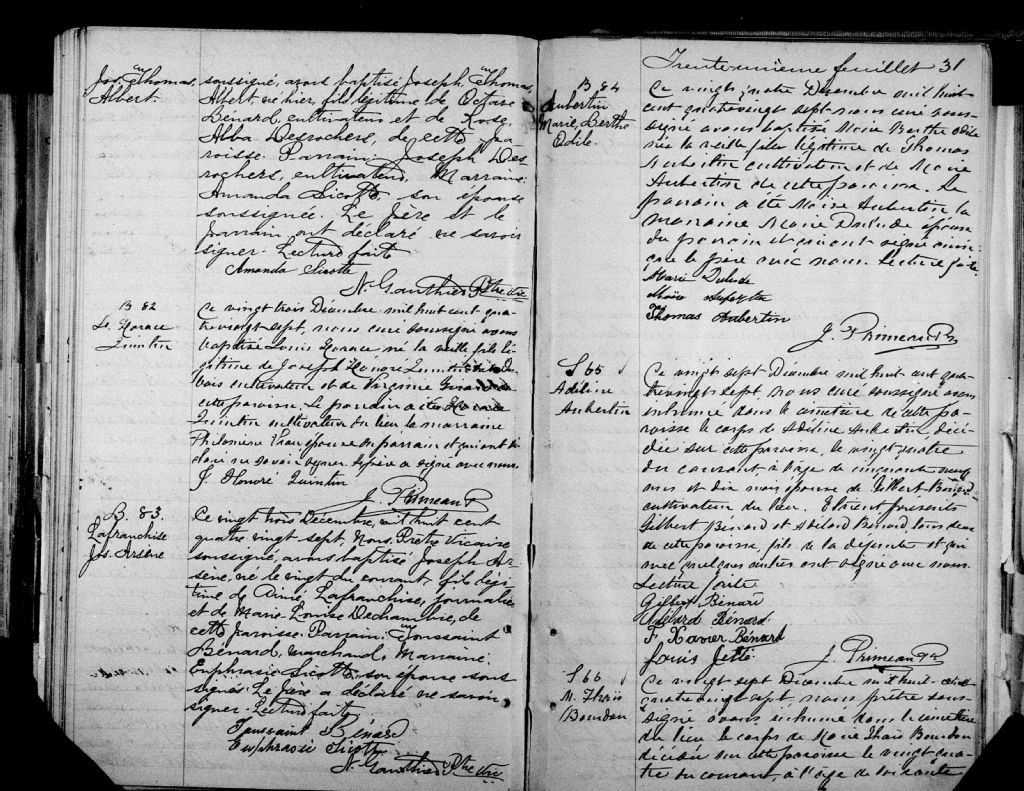 Jos. Thomas
Albert.
soussigné, avons baptisé Joseph Thomas
Albert, né hier, fils légitime de Octave
Bénard, cultivateur et de Rose
Alba Desrochers, de cette pa
roisse. Parrain: Joseph Des
rochers, cultivateur, Marraine:
Amanda Sicotte, son épouse
soussignée. Le père et le
parrain ont déclaré ne savoir
signer. Lecture faite
Amanda Sicotte
N. Gauthier Ptre Vre
B 82
Ls. Horace
Quintin
Ce vingt trois Décembre mil huit cent qua
trevingt sept, nous curé soussigné avons
baptisé Louis Horace né la veille fils lé
gitime de Joseph Honoré Quintin
bois cultivateur et de Virginie
cette paroisse. Le parrain a été Horace
Quintin cultivateur du lieu la marraine
Philomène épouse du parrain et qui ont dé
claré ne savoir signer. Le père a signé avec nous.
J. Honoré Quintin
J. Primeau Ptr
B. 83.
Lafranchise
Jos. Arsène
Ce vingt trois Décembre, mil huit cent
quatre vingt sept, Nous, Prêtre Vicaire
soussigné, avons baptisé Joseph Ar
sène, né le vingt du courant, fils légi
time de Aimé Lafranchise, journalier
et de Marie-Louise Dechambre, de
cette paroisse. Parrain: Toussaint
Bénard, marchand, Marraine:
Euphrasie Sicotte, son épouse sous
signés. Le père a déclaré ne savoir
signer. Lecture faite
Toussaint Bénard
Euphrasie Sicotte
N. Gauthier Ptre Vre
Trente-unième feuillet 31
B 84
Aubertin
Marie, Berthe
Odile
Ce vingt quatre Décembre mil huit
cent quatrevingt sept nous curé sous
signé avons baptisé Marie Berthe Odile
née la veille fille légitime de Thomas
Aubertin cultivateur et de Marie
Aubertin de cette paroisse. Le
parrain a été Moïse Aubertin la
marraine Marie Dulude épouse
du parrain et qui ont signé ainsi
que le père avec nous. Lecture faite
Marie Dulude
Moïse Aubertin
Thomas Aubertin
J. Primeau Ptr
S 65
Adéline
Aubertin
Ce vingt sept Décembre mil huit cent qua
trevingt sept nous curé soussigné avons
inhumé dans le cimetière de cette pa
roisse le corps de Adéline Aubertin décé
dée sur cette paroisse, le vingt quatre
du courant à l'âge de cinquante neuf
ans et dix mois épouse de Gilbert Bénard
cultivateur du lieu. Étaient présents
Gilbert Bénard et Adélard Bénard tous deux
de cette paroisse, fils de la défunte et qui
avec quelques autres ont signé avec nous.
Lecture faite
Gilbert Bénard
Adélard Bénard
F. Xavier Bénard
Louis Jetté
J. Primeau Ptr
S 66
M. Thaïs
Bourdon
Ce vingt sept Décembre mil huit cent
quatrevingt sept, nous, prêtre sous
signé avons inhumé dans le cimetière
du lieu le corps de Marie Thaïs Bourdon
décédée sur cette paroisse le vingt qua
tre du courant, à l'âge de soixante